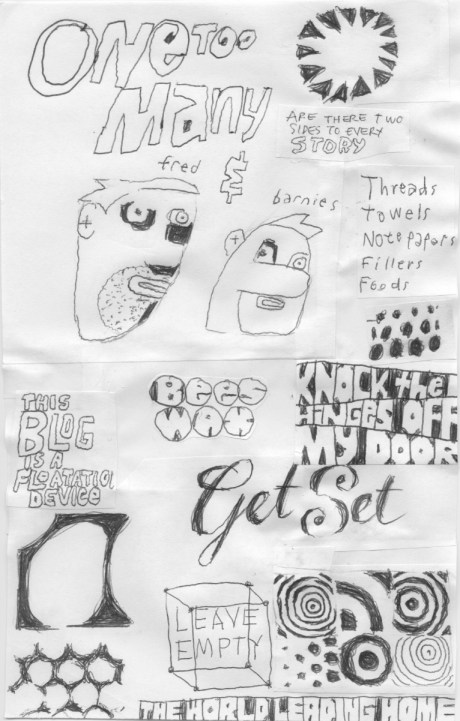 One too
many
ARE THERE TWO
SIDES TO EVERY
STORY
fred
&
barnies
Threads
towels
Note papars
Fillers
Foods
Bees
WAX
KNOCK the
HINGES OFF
MY DOOR
THIS
BLOG
IS A
FLOATATION
DEVICE
Get Set
LEAVE
EMPTY
THE WORLD LEADING HOME